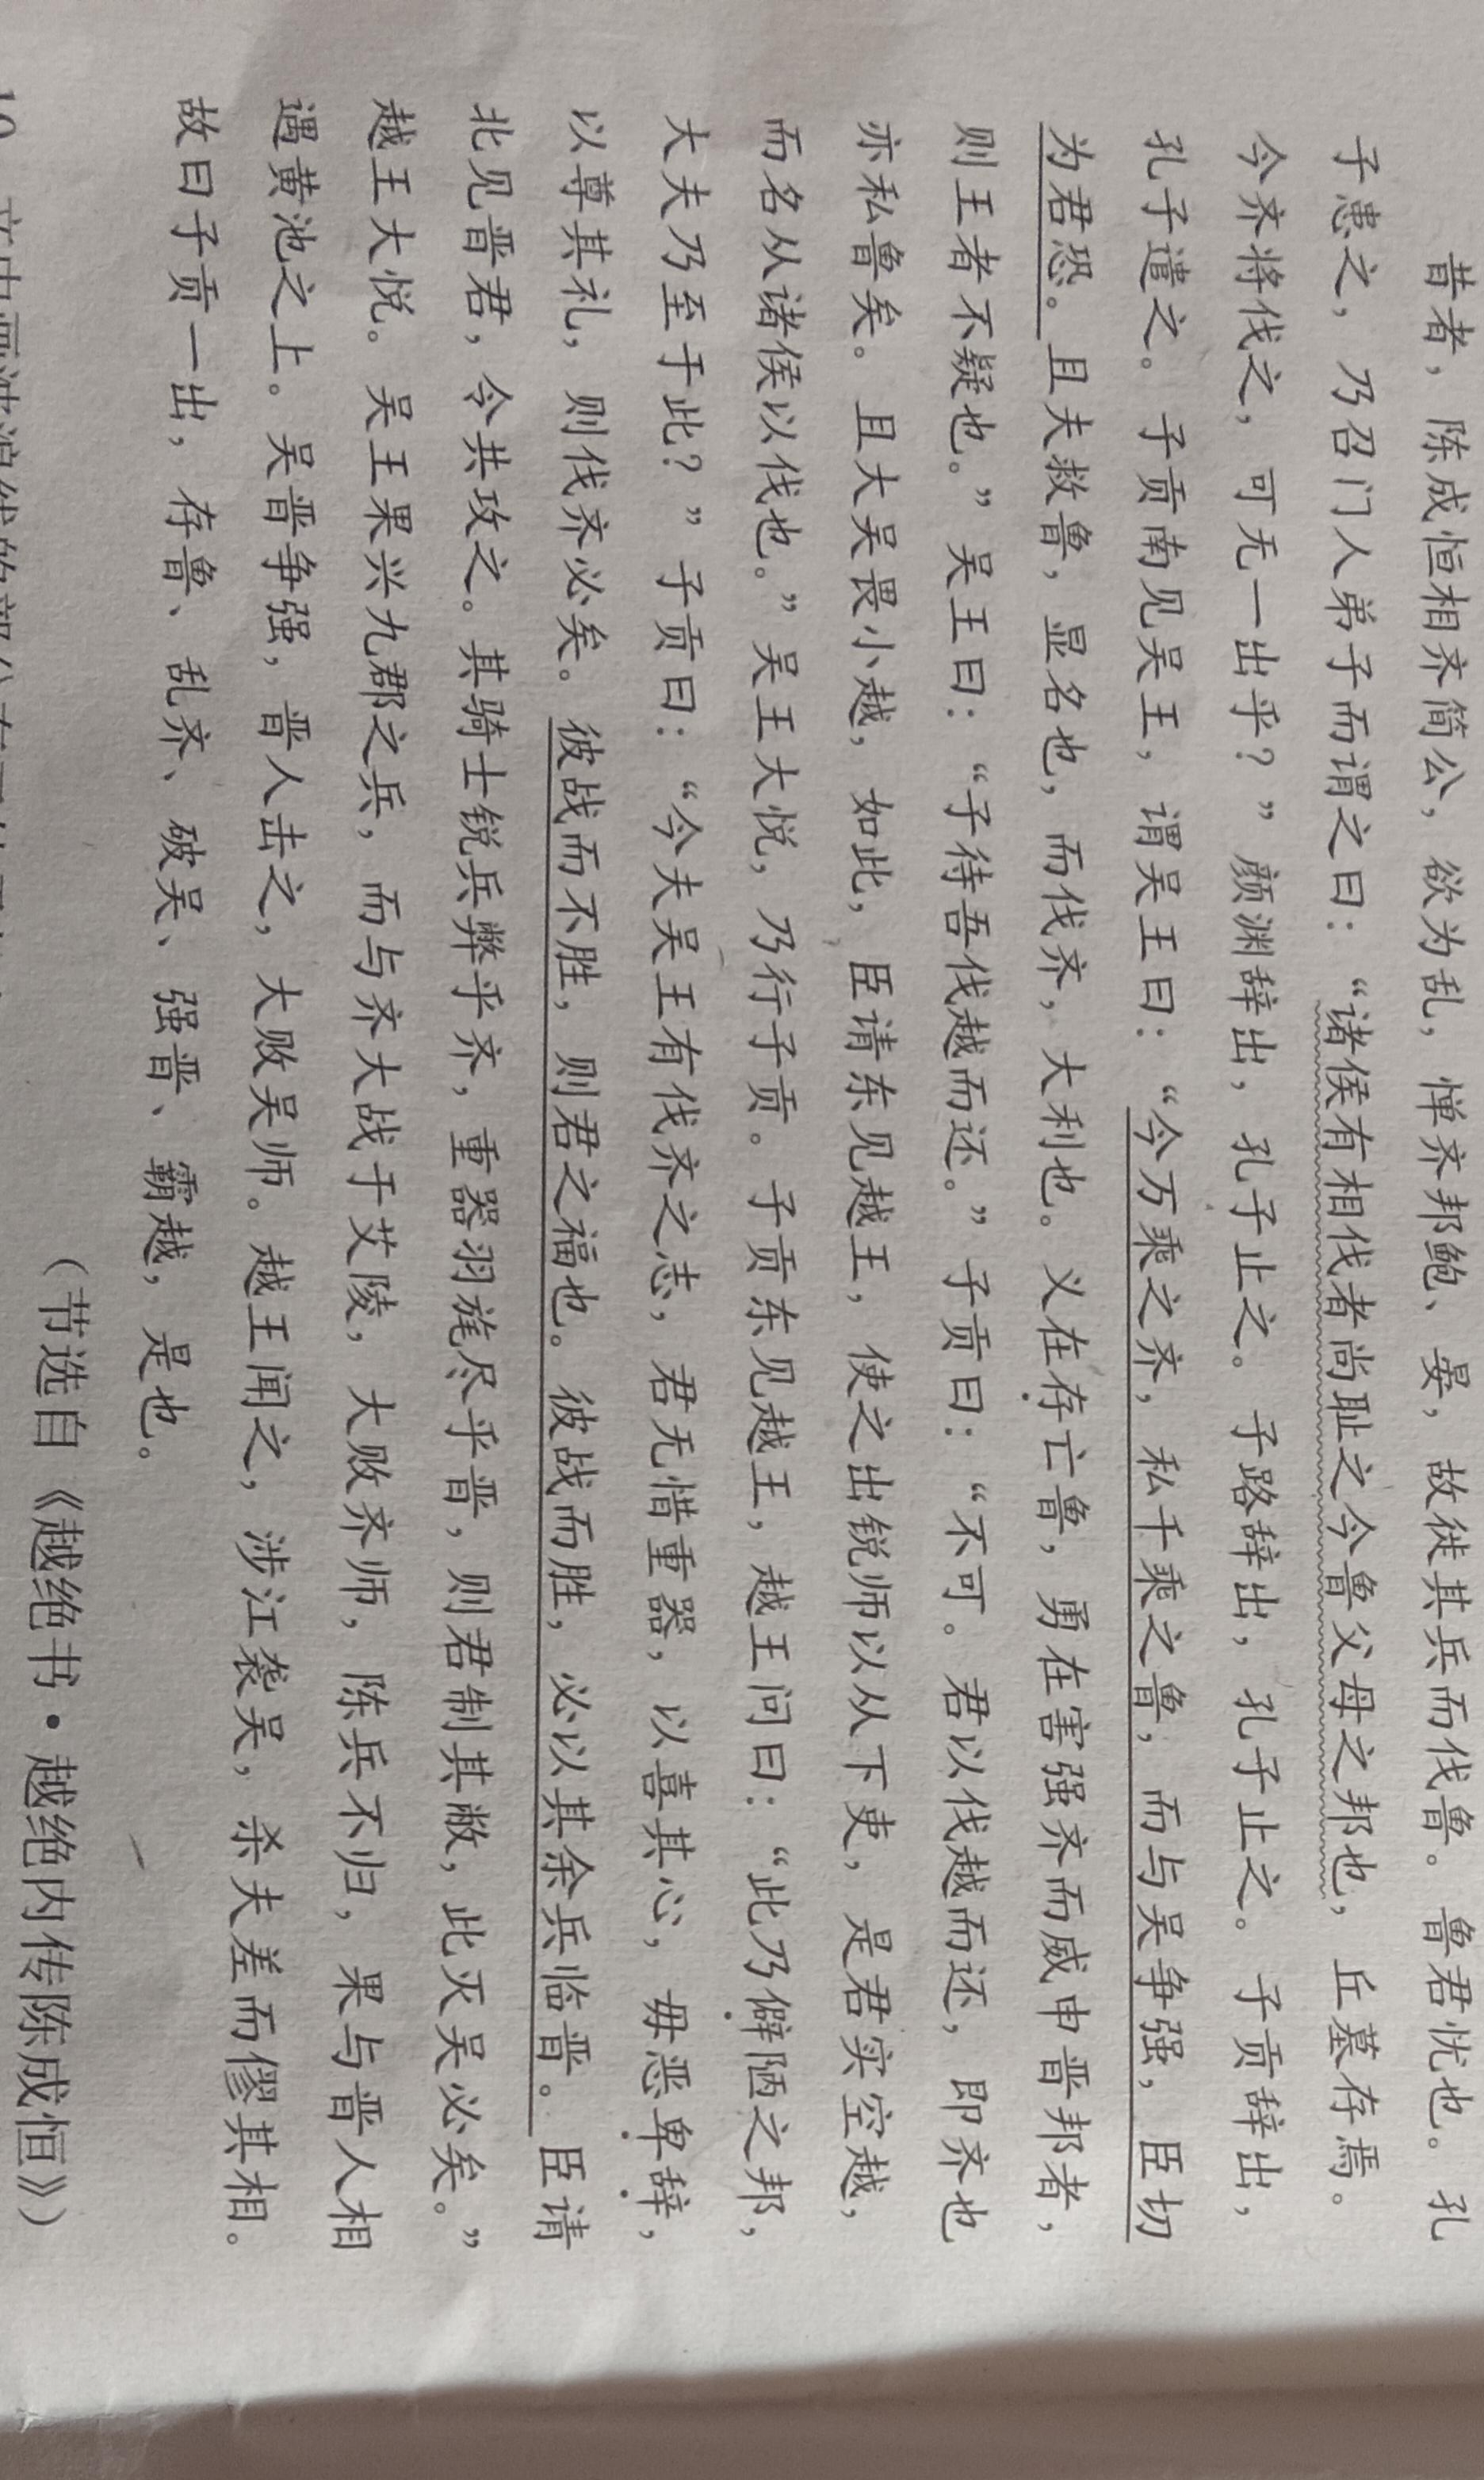 昔者，陈成恒相齐简公，欲为乱，惮齐邦鲍、晏，故徙其兵而伐鲁。鲁君忧也。孔
子患之，乃召门人弟子而谓之曰：“诸侯有相伐者尚耻之今鲁父母之邦也，丘墓存焉。
今齐将伐之，可无一出乎？”颜渊辞出，孔子止之。子路辞出，孔子止之。子贡辞出，
孔子遣之。子贡南见吴王，谓吴王曰：“今万乘之齐，私千乘之鲁，而与吴争强，臣切
为君恐。且夫救鲁，显名也，而伐齐，大利也。义在存亡鲁，勇在害强齐而威申晋邦者，
则王者不疑也。”吴王曰：“子待吾伐越而还。”子贡曰：“不可。君以伐越而还，即齐也
亦私鲁矣。且大吴畏小越，如此，臣请东见越王，使之出锐师以从下吏，是君实空越，
而名从诸侯以伐也。”吴王大悦，乃行子贡。子贡东见越王，越王问曰：“此乃僻陋之邦，
大夫乃至于此？”子贡曰：“今夫吴王有伐齐之志，君无惜重器，以喜其心，毋恶卑辞，
以尊其礼，则伐齐必矣。彼战而不胜，则君之福也。彼战而胜，必以其余兵临晋。臣请
北见晋君，令共攻之。其骑士锐兵弊乎齐，重器羽旄尽乎晋，则君制其敝，此灭吴必矣。”
越王大悦。吴王果兴九郡之兵，而与齐大战于艾陵，大败齐师，陈兵不归，果与晋人相
遇黄池之上。吴晋争强，晋人击之，大败吴师。越王闻之，涉江袭吴，杀夫差而僇其相。
故曰子贡一出，存鲁、乱齐、破吴、强晋、霸越，是也。
（节选自《越绝书·越绝内传陈成恒》）